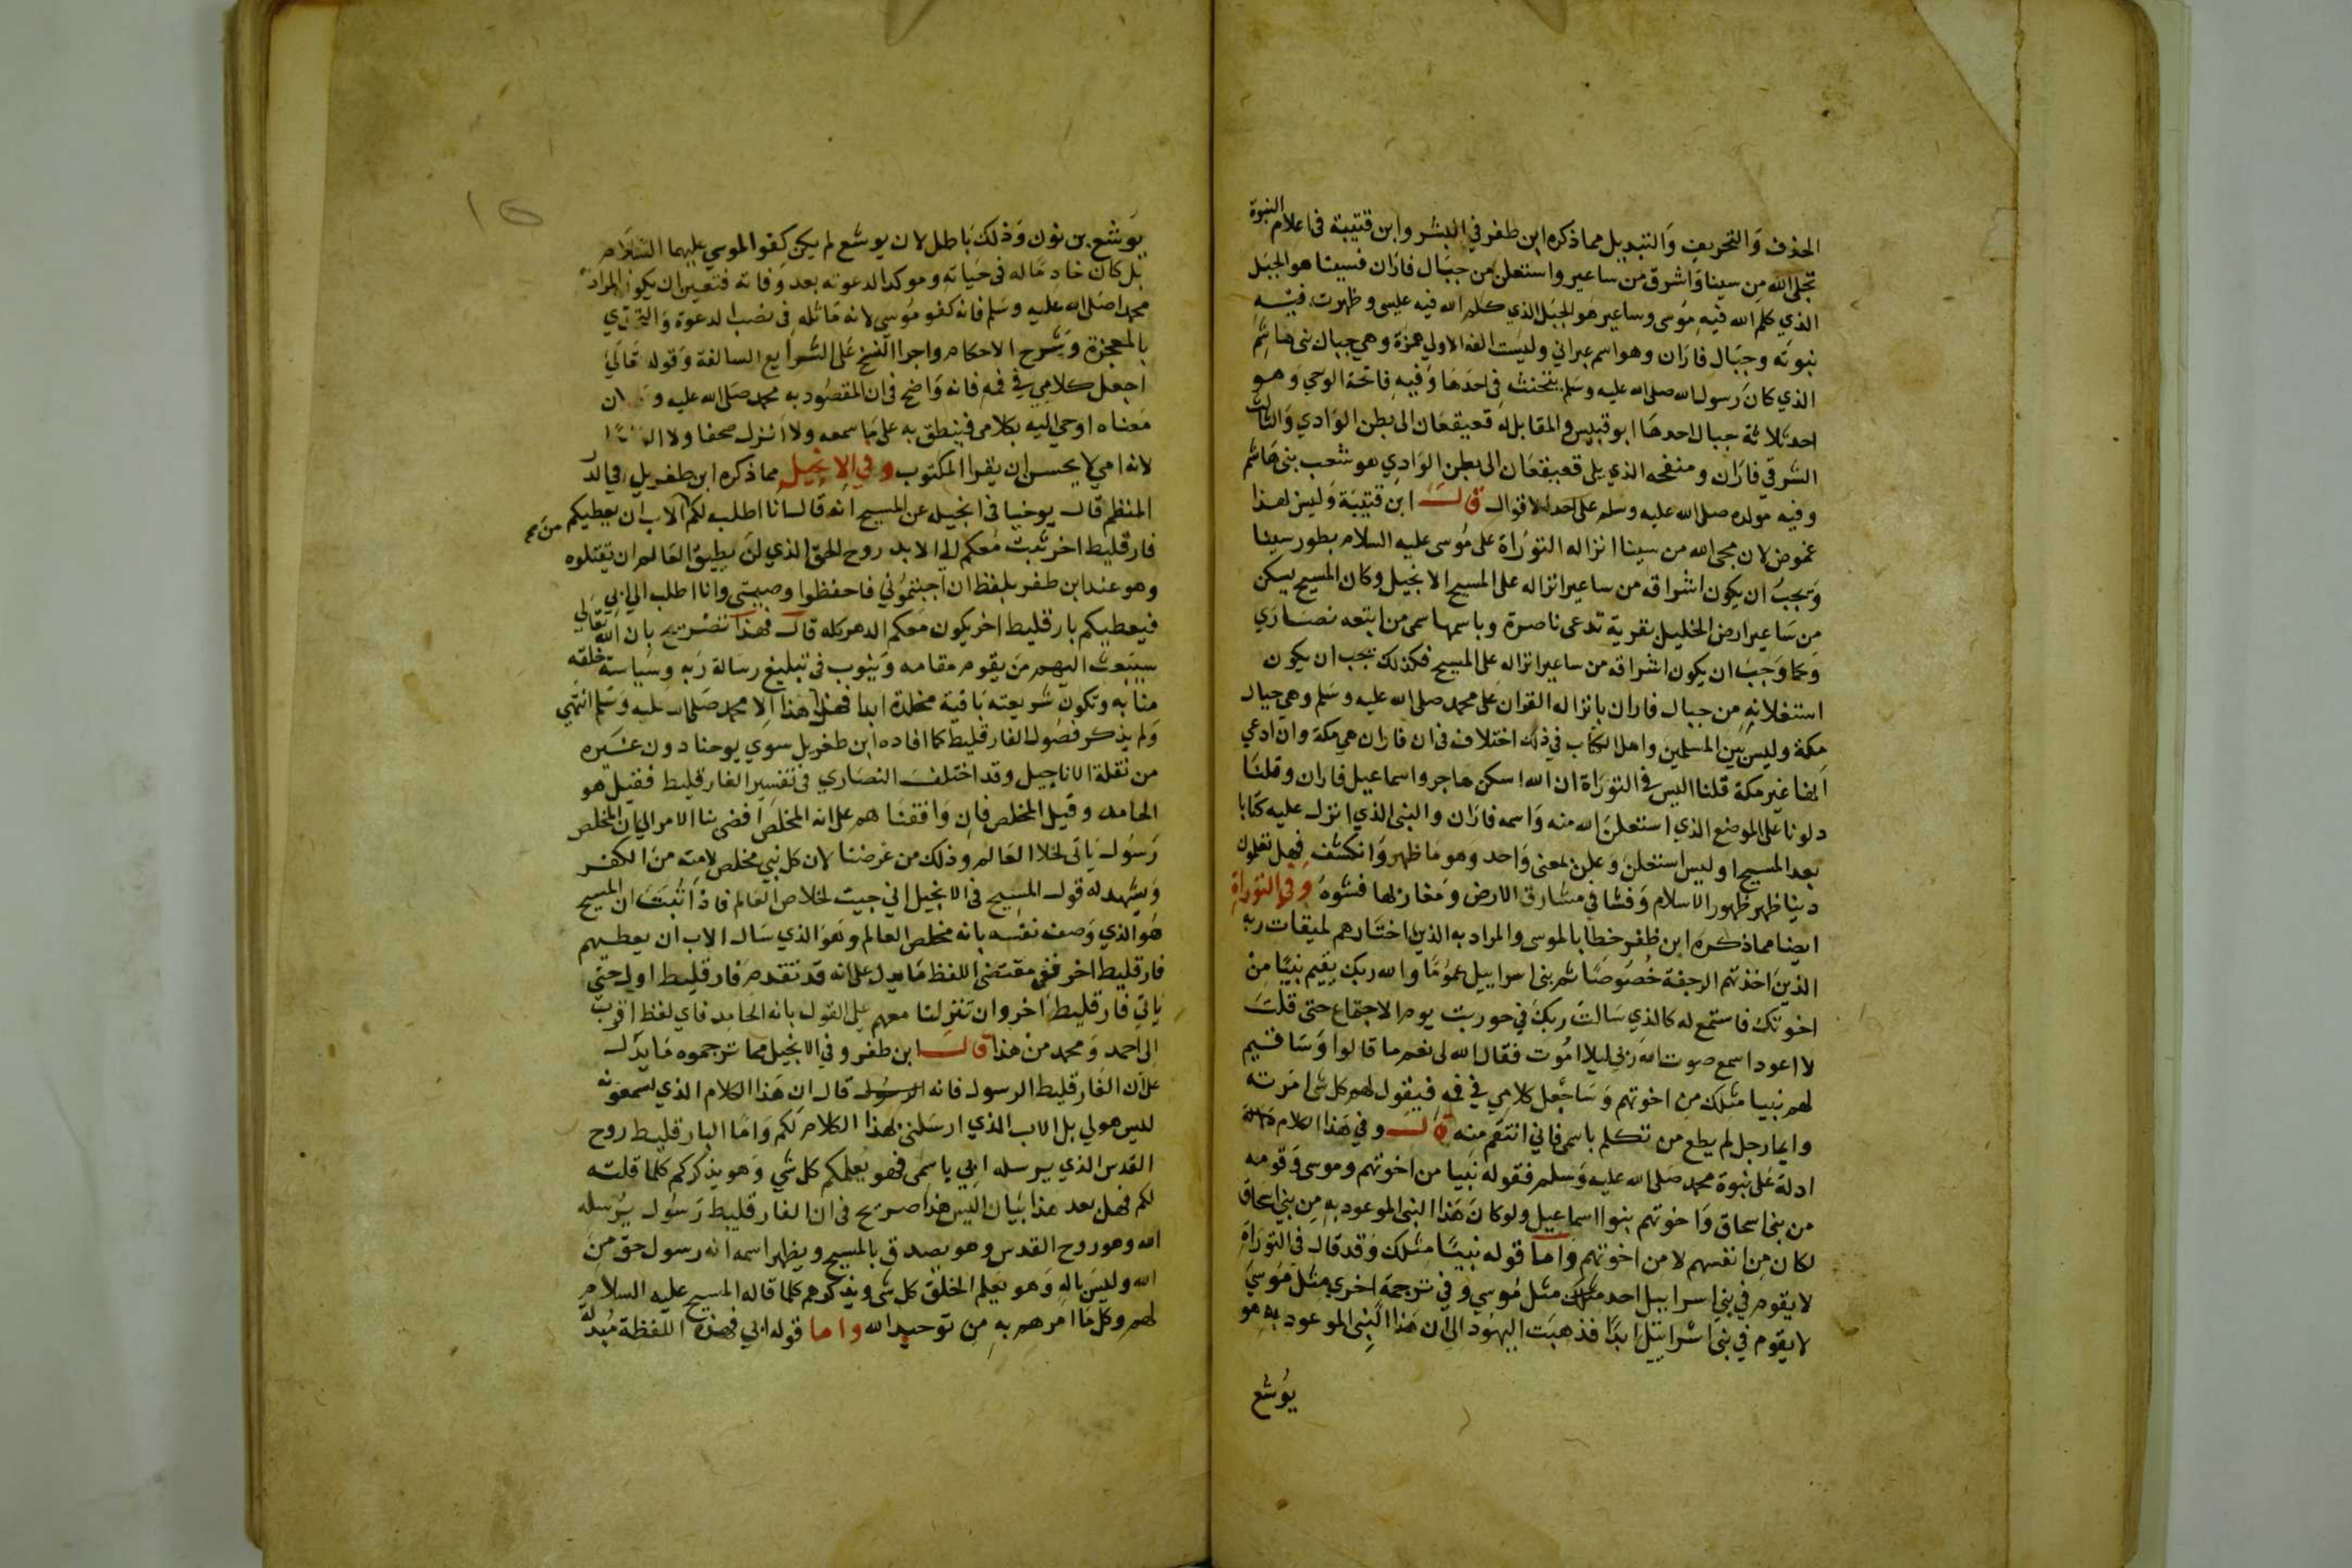 الحذف وَالتحريف وَالتبديل مما ذكره ابن ظفر في البشر وابن قتيبة في اعلام النبوة
تجلى الله من سينا وَاشرق من ساعير واستعلن من جبَال فارَان فسينا هو الجبَل
الذي كلم الله فيه مُوسى وساعير هو الجبَل الذي كلم الله فيه عليسى وظهرت فيه
نبوته وجبَال فارَان وهو اسم عبراني وليست الفه الاولي همزة وهي جبال بني هاشم
الذي كانَ رَسول الله صلى الله عليه وسَلم يتحنث في احدَها وَفيه فاتحة الوحي وهو
احد ثلاثة جبال احدها ابو قبيس والمقابل له قعيقعان الى بطن الوَادي وَالثالث
الشرقي فارَان ومنفحه الذي يلى قعيقعَان الى بطن الوَادي هو شعب بني هَاشم
وفيه مولده صلى الله عليه وسلم على احد الاقوال قال ابن قتيبَة وَليس لهذا
غموض لان مجى الله من سينا انزاله التورَاة على مُوسى عليه السلام بطور سينا
وَيجبُ ان يكون اشراقه من ساعير انزاله على المسيح الانجيل وكان المسيح يسكن
من سَاعير ارض الخليل بقرية تدعى ناصرة وباسمها سمى من اتبعه نصَارَي
وَكما وَجبَ ان يكون اشراقه من ساعير انزاله على المسيح فكذلك يجب ان يكون
استعلانه من جبال فاران بانزاله القران على محمد صلى الله عليه وسَلم وهي جبال
مكة وليس بين المسلمين واهل الكتاب في ذلك اختلاف في ان فاران هي مكة وان ادعي
انها غير مكة قلنا اليس في التورَاة ان الله اسكن هاجر واسماعيل فاران وقلنَا
دلونا على الموضع الذي استعلن الله منه وَاسمه فارَان والنبى الذي انزل عليه كتابا
بعد المسيح او ليس استعلن وَعلن لمعنى وَاحد وهو مَا ظهر وَانكشف فهل تعلمون
دينا ظهر ظهور الاسلام وَفشا في مشارق الارض وَمغاربها فشوهُ وفي التورَاة
ايضا مما ذكره ابن ظفر خطابا لموسى والمراد به الذين اختارهم لميقات ربه
الذين اخذتهم الرجفة خصُوصًا ثم بنى اسراييل عمُومًا والله ربك يقيم نبيًا من
اخوتك فاستمع له كالذي سَالت ربك في حوريث يوم الاجتماع حتى قلتَ
لا اعود اسمع صوت الله ربي ليلا امُوت فقال الله لى نعم ما قالوا وَسَاقيم
لهم نبيا مثلك من اخوتهم وَسَاجعل كلامي في فمه فيقول لهم كل شى امَرته
وايما رجل لم يطع من تكلم باسمى فاني انتقم منه قال وفي هَذا الكلام
ادلة عَلى نبوة محمد صَلى الله عليه وَسَلم فقوله نَبيا من اخوتهم وموسى وَقومه
من بني اسحاق وَاخوتهم بنوا اسماعيل ولو كانَ هَذا النبى الموعود به مِن بني اسحاق
لكان مِن انفسهم لا من اخوتهم وَاما قوله نبيًا مثلك وَقد قال في التورَاة
لا يقوم في بني اسراييل احد مثل مُوسى وفي ترجمة اخرى مثل مُوسىَ
لا يقوم في بني اسراييل ابدًا فذهبَت اليهُود الى ان هَذا النَّبِى الموعود به هو
يُوشع
يوَشع بن نون وَذلك باطل لان يوشع لم يكن كفوا لموسي عليهما السَّلام
بَل كان خادمًا له في حيَاته وموكدا لدعوته بعد وَفاته فتعين ان يكون المراد
محمدا صَلى الله عليه وسَلم فانه كفو مُوسى لانه مَاثله في نصب الدعوة وَالتحدي
بالمعجزة وَشرح الاحكام واجرا النسخ عَلى الشرايع السالفة وَقوله تعَالَى
اجعل كلامي في فمه فانه وَاضح في ان المقصُود به محمد صَلى الله عليه و ان
مَعناه اوحي اليه بكلامى فينطق به على مَا سمعه ولا اُنزل صحفا ولا
لانه امي لا يحسن ان يقرا المكتوب وفي الانجيل مما ذكره ابن طغربل في الدر
المنظم قال يوحنا في انجيله عن المسيح انه قال انا اطلب لكم الاب ان يعطيكم
فارقليط اخر يثبت معكم الي الابد روح الحق الذي لن يطيق العَالم ان يقتلوه
وهو عند ابن ظفر بلفظ ان اجبتمُوني فاحفظوا وصيتى وانا اطلب الي ابي
فيعطيكم بارقليط اخر يكون معَكم الدهر كله قال فهذا تصريح بان الله تعَالي
سيبعث اليهم مَن يقوم مقامه وَينوب في تبليغ رسالة رَبه وسيَاسة خلقه
منَابه وَتكون شريعته بَاقية مخلدة ابدا فهل هَذا الا محمد صَلى الله عليه وَسَلم انتهي
وَلم يذكر فصُول الفارقليط كما افاده ابن طغربل سوَي يوحنا دون غيره
من نقلة الاناجيل وقد اختلفَ النصَاري في تفسير الفارقليط فقيل هو
الحامد وقيل المخلص فان وَافقنَاهم على انه المخلص افضى بنا الامر الي ان المخلص
رَسُول يَاتي لخلا العَالم وذلك من غرضنا لان كل نبي مخلص لامته من الكفر
وَيشهد له قول المسيح في الانجيل اني جيت لخلاص العَالم فاذا ثبتَ ان المسيح
هو الذي وَصف نفسه بانه مخلص العالم وهوَ الذي سَال الاب ان يعطيهم
فارقليط اخر ففي مقتضى اللفظ مَا يدل على انه قد تقدم فارقليط اول حتى
يَاتي فارقليط اخر وان تنزلنا معهم على القول بانه الحامد فاي لفظ اقرب
الى احمد وَمحمد من هذا قال ابن ظفر وفي الانجيل مما ترجموه مَا يدل
على ان الفارقليط الرسول فانه قال ان هَذا الكلام الذي تسمعَونه
ليس هو لي بل الاب الذي ارسَلني بهذا الكلام لكم وَامَّا البارقليط روح
القدس الذي يرسله ابي باسمى فهو يُعلمكم كل شي وَهو يذكركم كلما قلته
لكم فهل بعد هذا بيَان اليس هذا صريح في ان الفارقليط رَسُول يُرسله
الله وهو روح القدس وهو يصدق بالمسيح ويظهر اسمه انه رسول حق من
الله وليسَ باله وَهو يعَلم الخلق كل شى ويذكرهم كلما قاله المسيح عليه السلام
لهم وكل مَا امرهم به من توحيد الله واما قوله ابي فهذه اللفظة مُبدلة